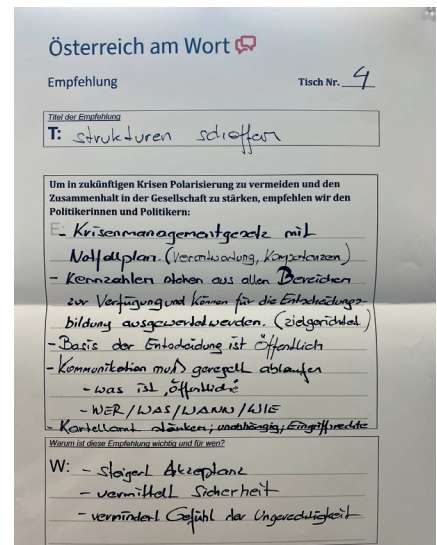 Österreich am Wort
Empfehlung
Tisch Nr. 4
Titel der Empfehlung
T: strukturen schaffen
Um in zukünftigen Krisen Polarisierung zu vermeiden und den
Zusammenhalt in der Gesellschaft zu stärken, empfehlen wir den
Politikerinnen und Politikern:
E: - Krisenmanagementgesetz mit
Notfallplan. (Verantwortung, Kompetenzen)
- Kennzahlen stehen aus allen Bereichen
zur Verfügung und können für die Entscheidungs-
bildung ausgewertet werden. (zielgerichtet)
- Basis der Entscheidung ist öffentlich
- Kommunikation muß geregelt ablaufen
- was ist "öffentliche"
- WER/WAS/WANN/WIE
- Kartellamt stärken; unabhängig; Eingriffsrechte
Warum ist diese Empfehlung wichtig und für wen?
W: - steigert Akzeptanz
- vermittelt Sicherheit
- vermindert Gefühl der Ungerechtigkeit